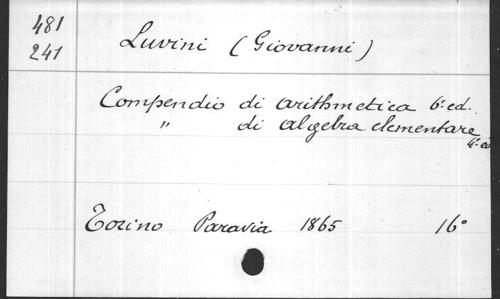 481
241
Luvini (Giovanni)
Compendio di arithmetica 6ª ed.
" di algebra elementare
4ª ed
Torino Paravia 1865 16°